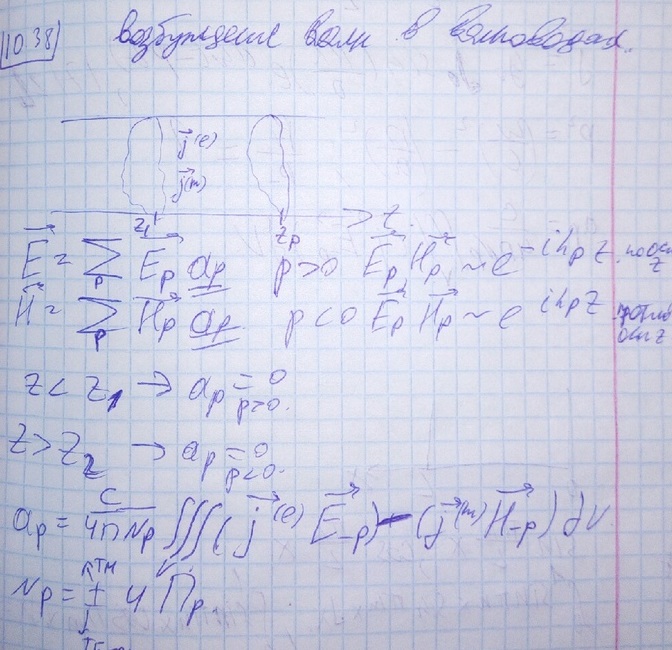 10.38 возбуждение волн в волноводах.
j⃗⁽ᵉ⁾
j⃗⁽ᵐ⁾
z₁ z₂ z
E⃗ = ∑ₚ E⃗ₚ aₚ p>0 E⃗ₚ, H⃗ₚ ~ e^{-ihₚz} по оси z
H⃗ = ∑ₚ H⃗ₚ aₚ p<0 E⃗ₚ H⃗ₚ ~ e^{ihₚz} против оси z
z < z₁ → aₚ = 0 p>0.
z > z₂ → aₚ = 0 p<0.
aₚ = c/(4πNₚ) ∭ᵥ (j⃗⁽ᵉ⁾ E⃗₋ₚ) - (j⃗⁽ᵐ⁾ H⃗₋ₚ) dV
Nₚ = ± 4 Пₚ.
TM
TE